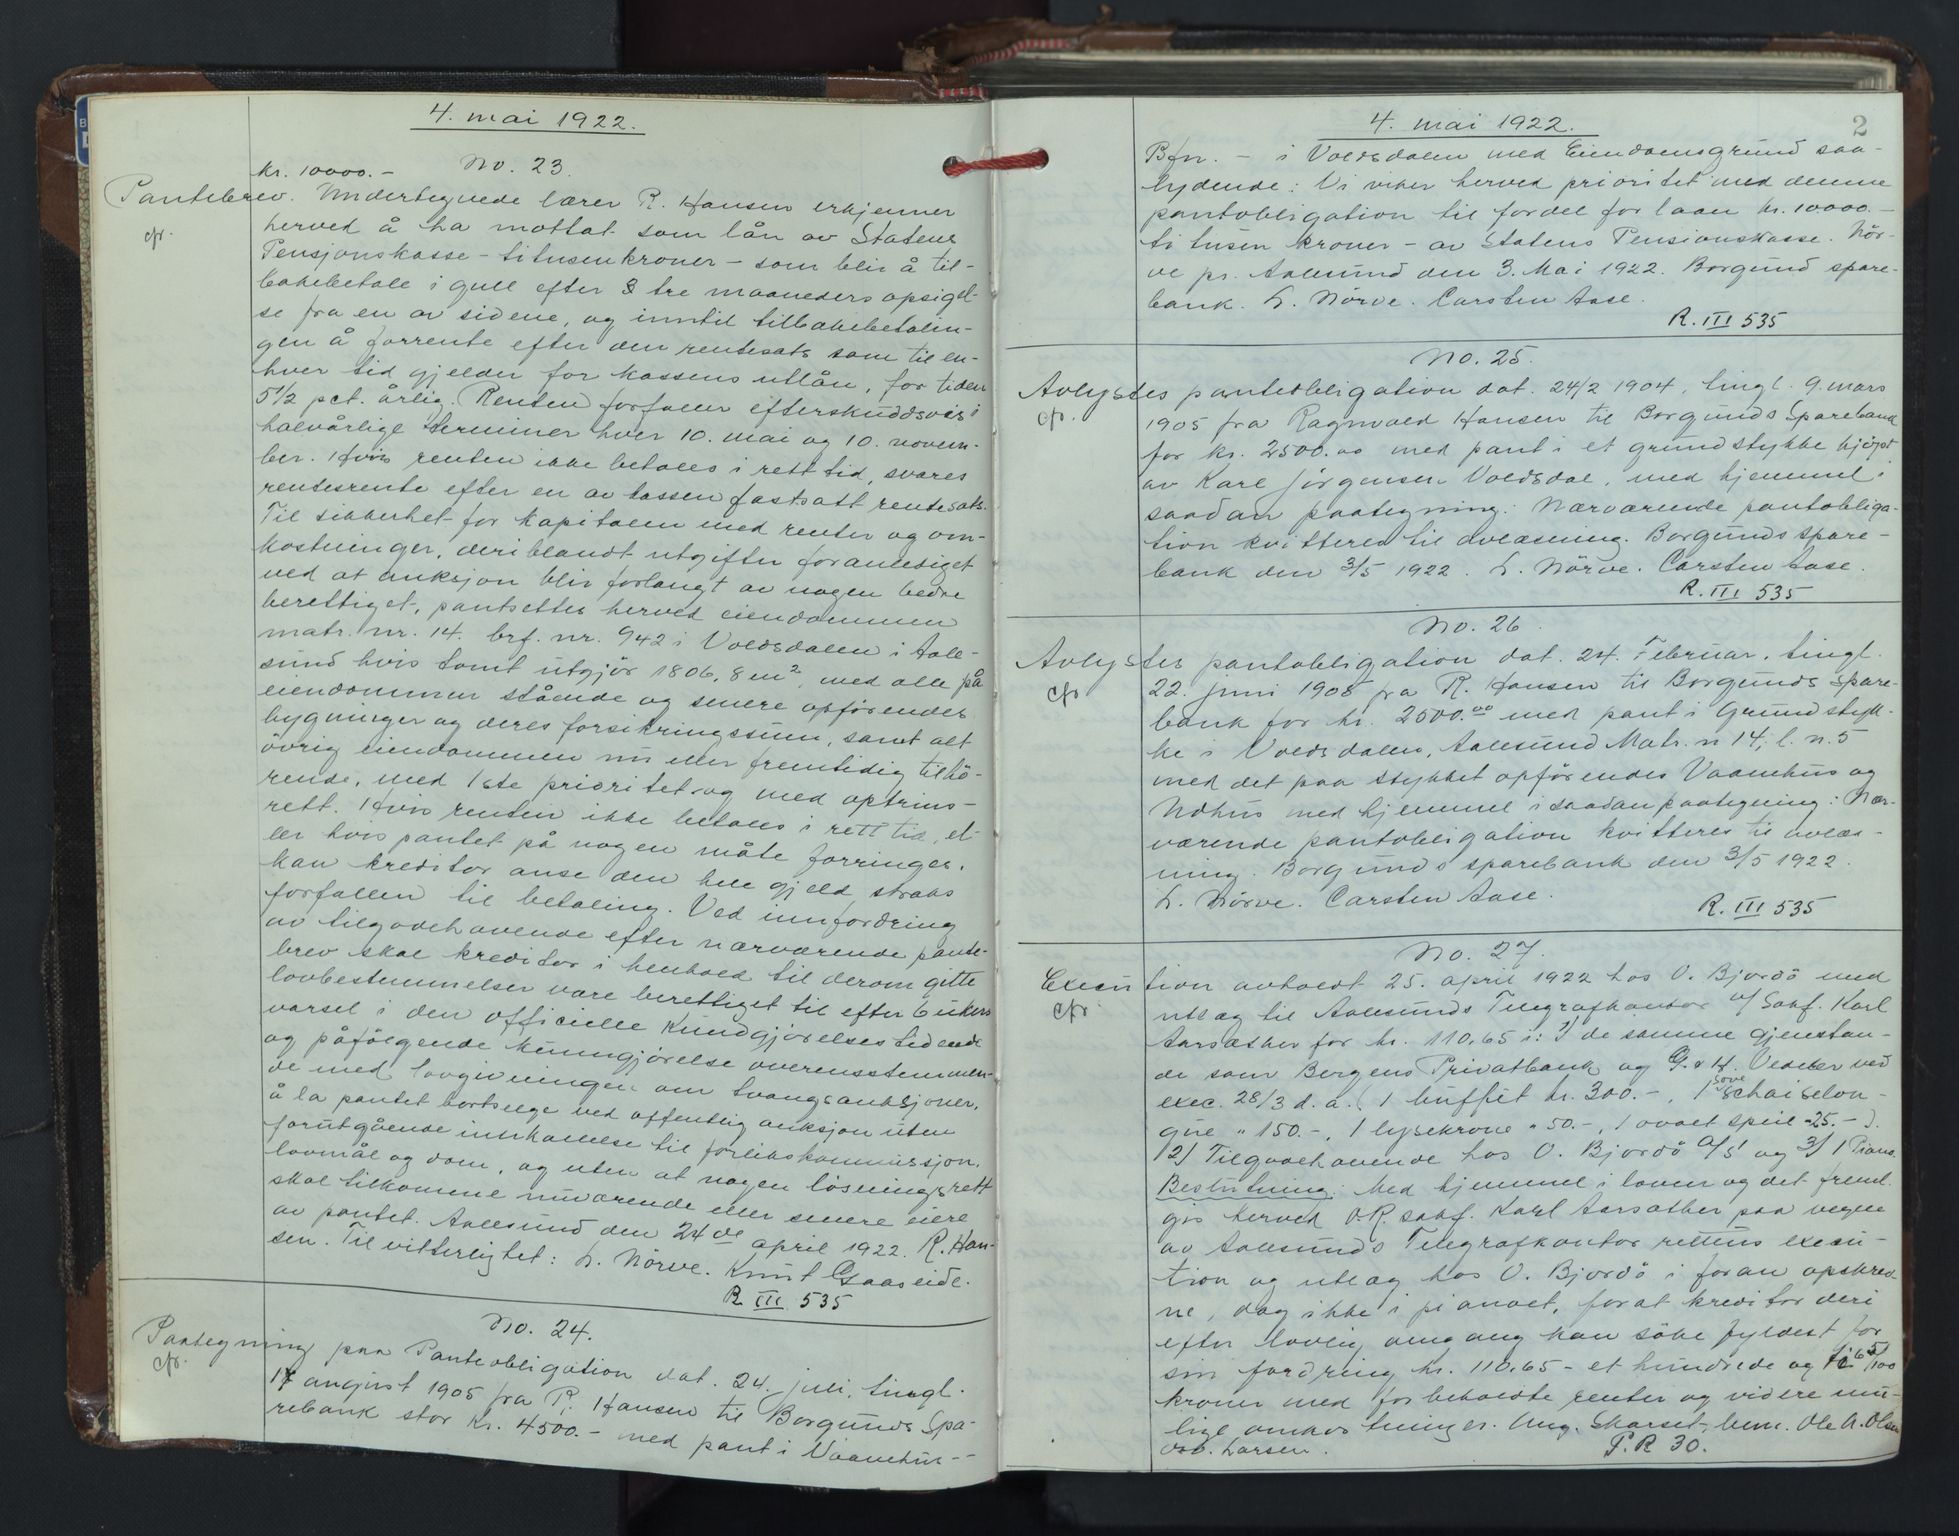 4. mai 1922.
kr. 10000.- No. 23.
Pantebrev. Undertegnede lærer R. Hansen erkjenner
cfr.
herved å ha mottat som lån av Statens
Pensjonskasse - titusenkroner - som blir å til-
bakebetale i gull efter 3 tre maaneders opsigel-
se fra en av sidene, og inntil tilbakebetalin-
gen å forrente efter den rentesats som til en-
hver tid gjelder for kassens utlån, for tiden
5½ pct. årlig. Renten forfaller efterskuddsvis i
halvårlige terminer hver 10. mai og 10. novem-
ber. Hvis renten ikke betales i rett tid, svares
rentesrente efter en av kassen fastsatt rentesats.
Til sikkerhet for kapitalen med renter og om-
kostninger, deriblandt utgifter foranlediget
ved at auksjon blir forlangt av nogen bedre
berettiget, pantsettes herved eiendommen
matr. nr. 14. brf. nr. 942 i Voldsdalen i Aale-
sund hvis tomt utgjör 1806,8 m² med alle på
eiendommen stående og senere opförendes
bygninger og deres forsikringssum, samt alt
övrig eiendommen nu eller fremtidig tilhö-
rende, med 1ste prioritet og med optrins-
rett. Hvis renten ikke betales i rett tid, el-
ler hvis pantet på nogen måte forringes,
kan kreditor anse den hele gjeld straks
forfallen til betaling. Ved innfordring
av tilgodehavende efter nærværende pante-
brev skal kreditor i henhold til derom gitte
lovbestemmelser være berettiget til efter 6 ukers
varsel i den officielle Kundgjörelsestidende
og påfölgende kunngjörelse overensstemmen-
de med lovgivningen om tvangsauksjoner,
å la pantet bortselge ved offentlig auksjon uten
forutgående innkallelse til forlikskommissjon,
lovmål og dom, og uten at nogen lösningsrett
skal tilkomme nuværende eller senere eiere
av pantet. Aalesund den 24de april 1922. R. Han-
sen. Til vitterlighet: L. Nörve. Knut Gaaseide.
R. III 535
No. 24.
Paategning paa Panteobligation dat. 24. juli, tingl.
cfr.
17 august 1905 fra R. Hansen til Borgunds Spa-
rebank stor Kr. 4500.- med pant i Vaanehus-
4. mai 1922.
2
Bfn. - i Voldsdalen med Eiendomsgrund saa-
lydende: Vi viker herved prioritet med denne
pantobligation til fordel for laan kr. 10000.-
ti tusen kroner - av Statens Pensionskasse. Nör-
ve pr. Aalesund den 3. Mai 1922. Borgund spare-
bank. L. Nörve. Carsten Aase.
R. III 535
No. 25.
Avlystes pantobligation dat. 24/2 1904, tingl. 9. mars
cfr.
1905 fra Ragnvald Hansen til Borgunds Sparebank
for kr. 2500.00 med pant i et grundstykke kjöpt
av Karl Jörgensen Voldsdal, med hjemmel i
saadan paategning: Nærværende pantobliga-
tion kvitteres til avlæsning. Borgunds spare-
bank den 3/5 1922. L. Nörve. Carsten Aase.
R. III 535
No. 26.
Avlystes pantobligation dat. 24. Februar, tingl.
cfr
22. juni 1905 fra R. Hansen til Borgunds Spare-
bank for kr. 2500.00 med pant i Grundstyk-
ke i Voldsdalen, Aalesund Matr. n 14, l. n. 5
med det paa stykket opförendes Vaanehus og
Udhus med hjemmel i saadan paategning: Nær-
værende pantobligation kvitteres til avlæs-
ning. Borgunds sparebank den 3/5 1922.
L. Nörve. Carsten Aase.
R. III 535
No. 27.
Execution avholdt 25. april 1922 hos O. Bjordö med
cfr.
utlæg til Aalesunds Telegrafkontor v/ Sakf. Karl
Aarsæther for kr. 110,65 i: 1) de samme gjenstan-
de som Bergens Privatbank og G. & H. Vedeler ved
exec. 28/3 d. a. (1 buffet kr. 300.-, 1 sove schaiselon-
gue " 150.-, 1 lysekrone " 50.-, 1 ovalt speil -25.-).
2) Tilgodehavende hos O. Bjordö A/S og 3) 1 Piano.
Beslutning: Med hjemmel i loven og det freml.
gis herved O.R. sakf. Karl Aarsæther paa vegne
av Aalesunds Telegrafkontor rettens execu-
tion og utlæg hos O. Bjordö i foran opskrev-
ne, dog ikke i pianoet, forat kreditor deri
efter lovlig omgang kan söke fyldest for
sin fordring kr. 110,65 - et hundrede og ti 65/100
kroner med forbeholdte renter og videre mu-
lige omkostninger. Aug. Skarset, bem. Ole A. Olsen
Larsen. P. R 30.